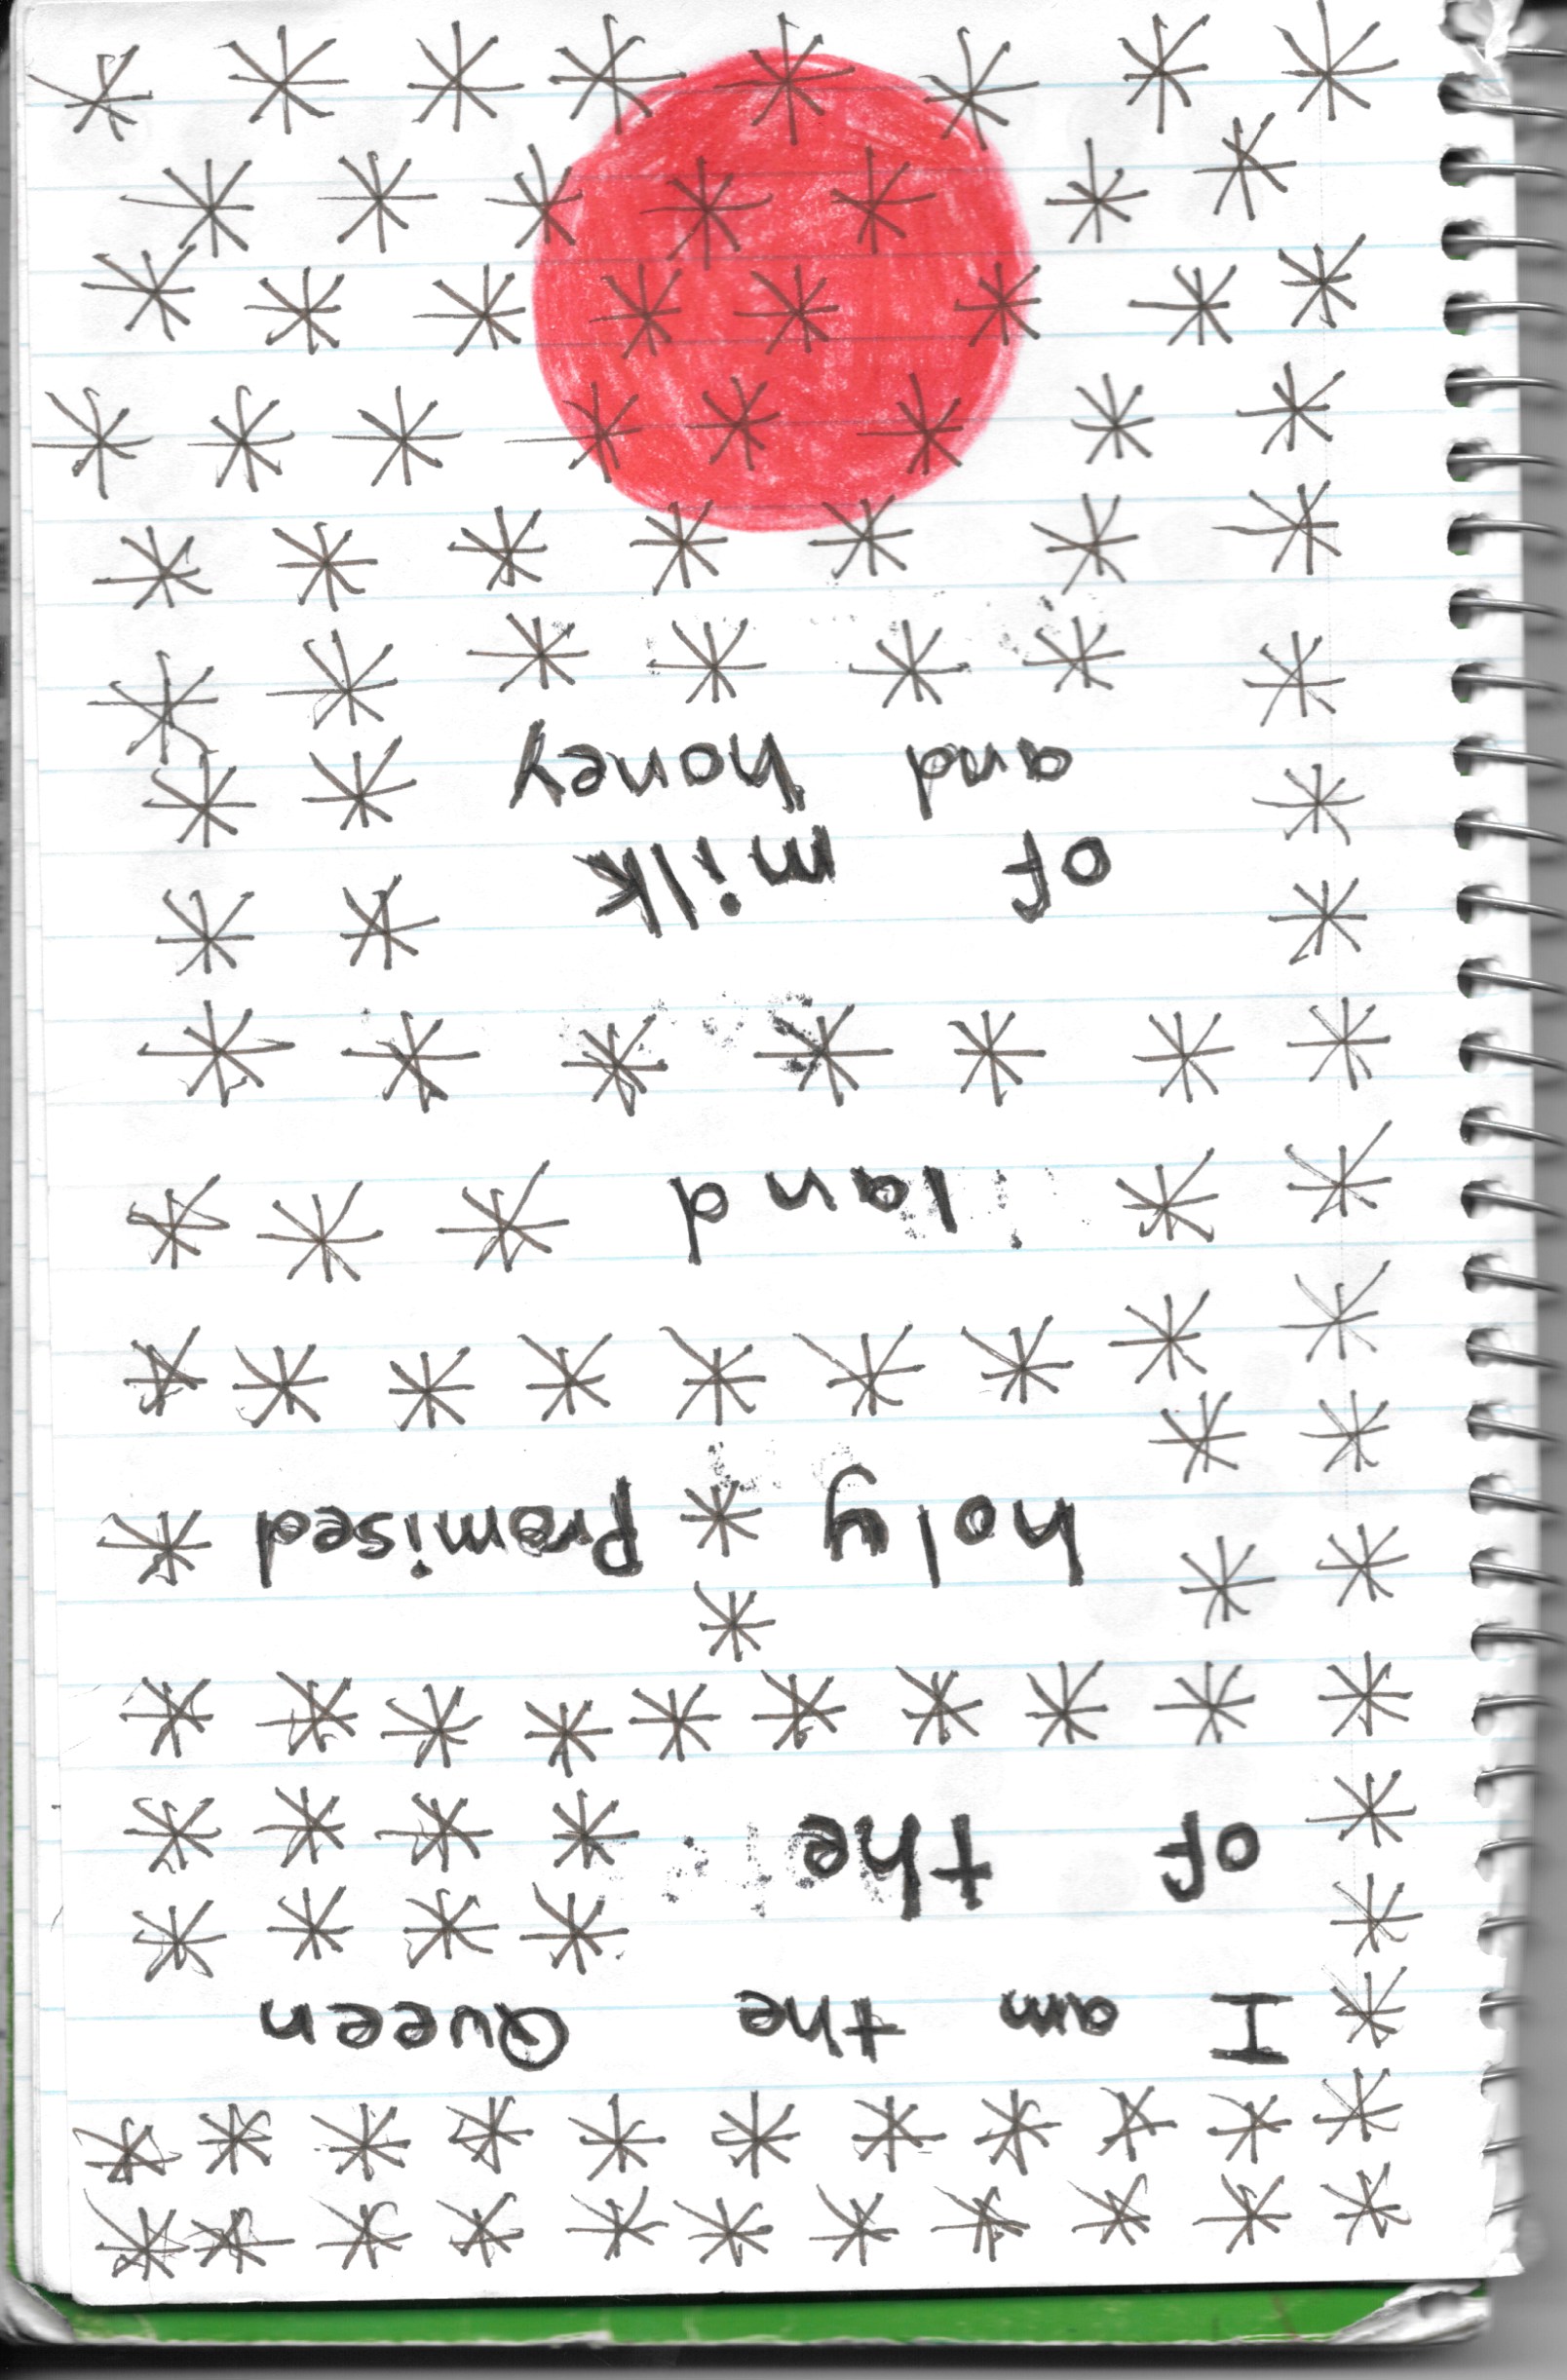 I am the Queen
of the
holy Promised
land
of milk
and honey